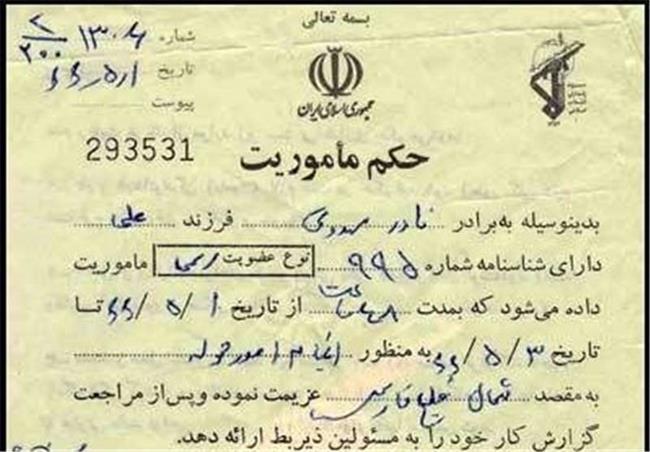 بسمه تعالی
شماره ۱۳۰۶
تاریخ ۶۶/۵/۱
پیوست
جمهوری اسلامی ایران
293531
حکم مأموریت
بدینوسیله به‌برادر نادر مهدوی فرزند علی
دارای شناسنامه شماره ۹۹۵ نوع عضویت رسمی ماموریت
داده می‌شود که بمدت ساعت از تاریخ ۶۶/۵/۱ تا
تاریخ ۶۶/۵/۳ به منظور انجام امور محوله
به مقصد شمال خلیج فارس عزیمت نموده و پس از مراجعت
گزارش کار خود را به مسئولین ذیربط ارائه دهد.